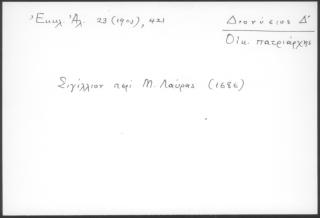 Ἐκκλ. Ἀλ. 23 (1903), 421
Διονύσιος Δ΄
Οἰκ. πατριάρχης
Σιγίλλιον περὶ Μ. Λαύρας (1686)